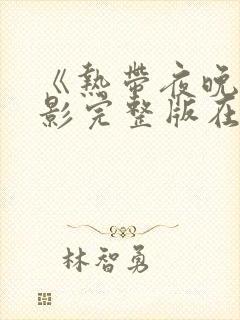 《熱帶夜晚
影完整版在
林智勇